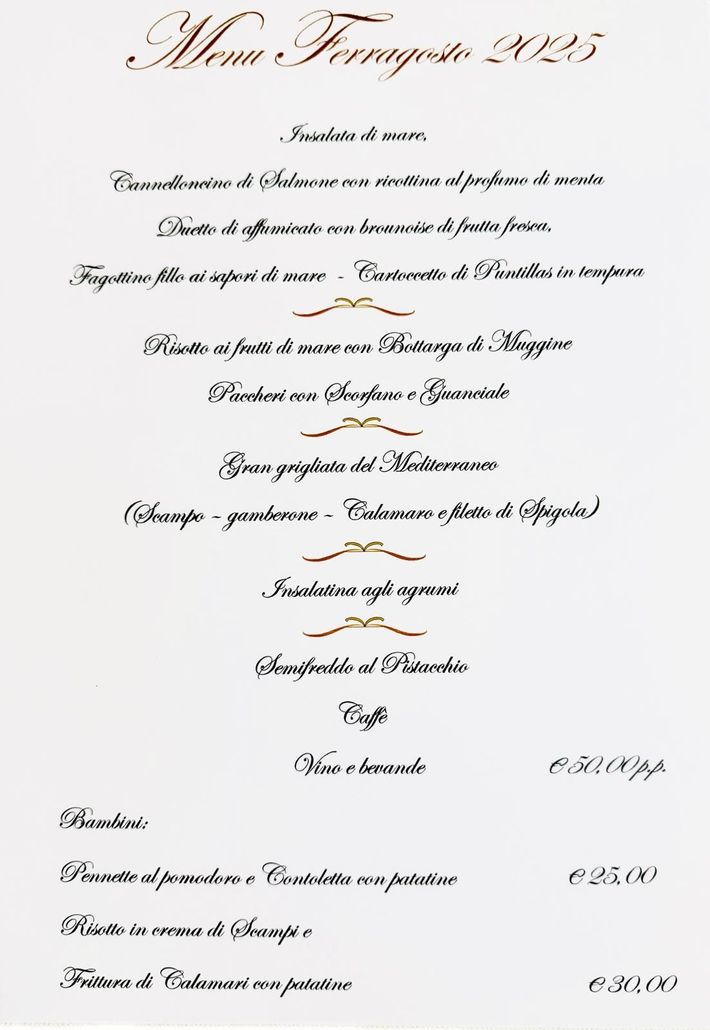 Menu Ferragosto 2025
Insalata di mare,
Cannelloncino di Salmone con ricottina al profumo di menta
Duetto di affumicato con brounoise di frutta fresca,
Fagottino fillo ai sapori di mare - Cartoccetto di Puntillas in tempura
Risotto ai frutti di mare con Bottarga di Muggine
Paccheri con Scorfano e Guanciale
Gran grigliata del Mediterraneo
(Scampo ~ gamberone ~ Calamaro e filetto di Spigola)
Insalatina agli agrumi
Semifreddo al Pistacchio
Caffè
Vino e bevande € 50,00 p.p.
Bambini:
Pennette al pomodoro e Contoletta con patatine € 25,00
Risotto in crema di Scampi e
Frittura di Calamari con patatine € 30,00